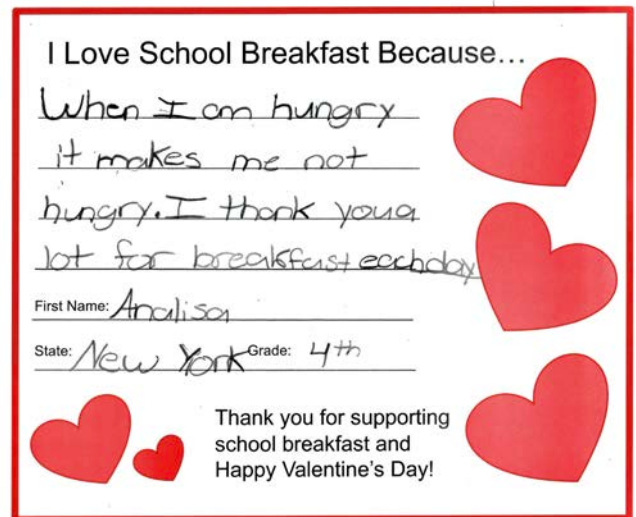 I Love School Breakfast Because...
When I am hungry
it makes me not
hungry. I thank you a
lot for breakfast each day
First Name: Analisa
State: New York Grade: 4th
Thank you for supporting
school breakfast and
Happy Valentine's Day!